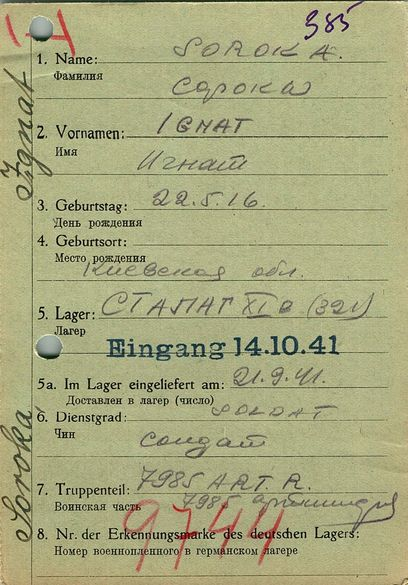 385
1. Name: SOROKA.
Фамилия Сорока
2. Vornamen: IGNAT
Имя Игнат
3. Geburtstag: 22.5.16.
День рождения
4. Geburtsort:
Место рождения
Киевская обл.
5. Lager: СТАЛАГ XI В (321)
Лагер
Eingang 14.10.41
5a. Im Lager eingeliefert am: 21.9.41.
Доставлен в лагер (число)
6. Dienstgrad: SOLDAT
Чин солдат
7. Truppenteil: 7985 ART. R.
Воинская часть 7985
8. Nr. der Erkennungsmarke des deutschen Lagers:
Номер военнопленного в германском лагере
9744
Soroka Ignat